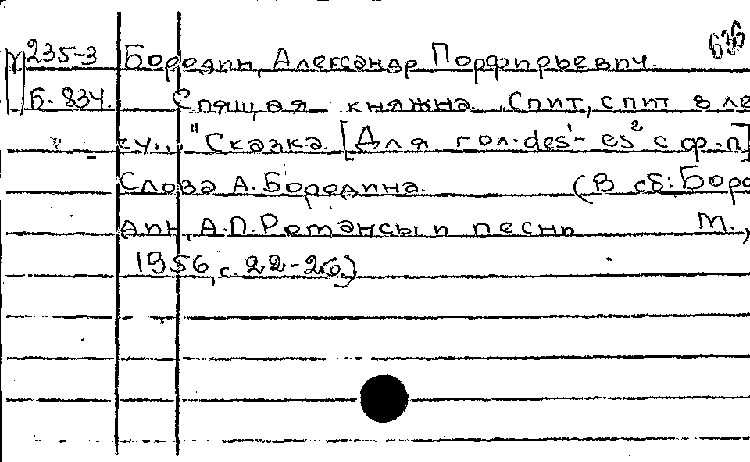 235-3 Бородин, Александр Порфирьевич.
Б-834. Спящая княжна. Спит, спит в ле
су..." Сказка. [Для гол. des¹- es² с ф.-п]
Слова А. Бородина. (В сб: Боро
дин, А.П. Романсы и песни М.,
1956, с. 22-26.)